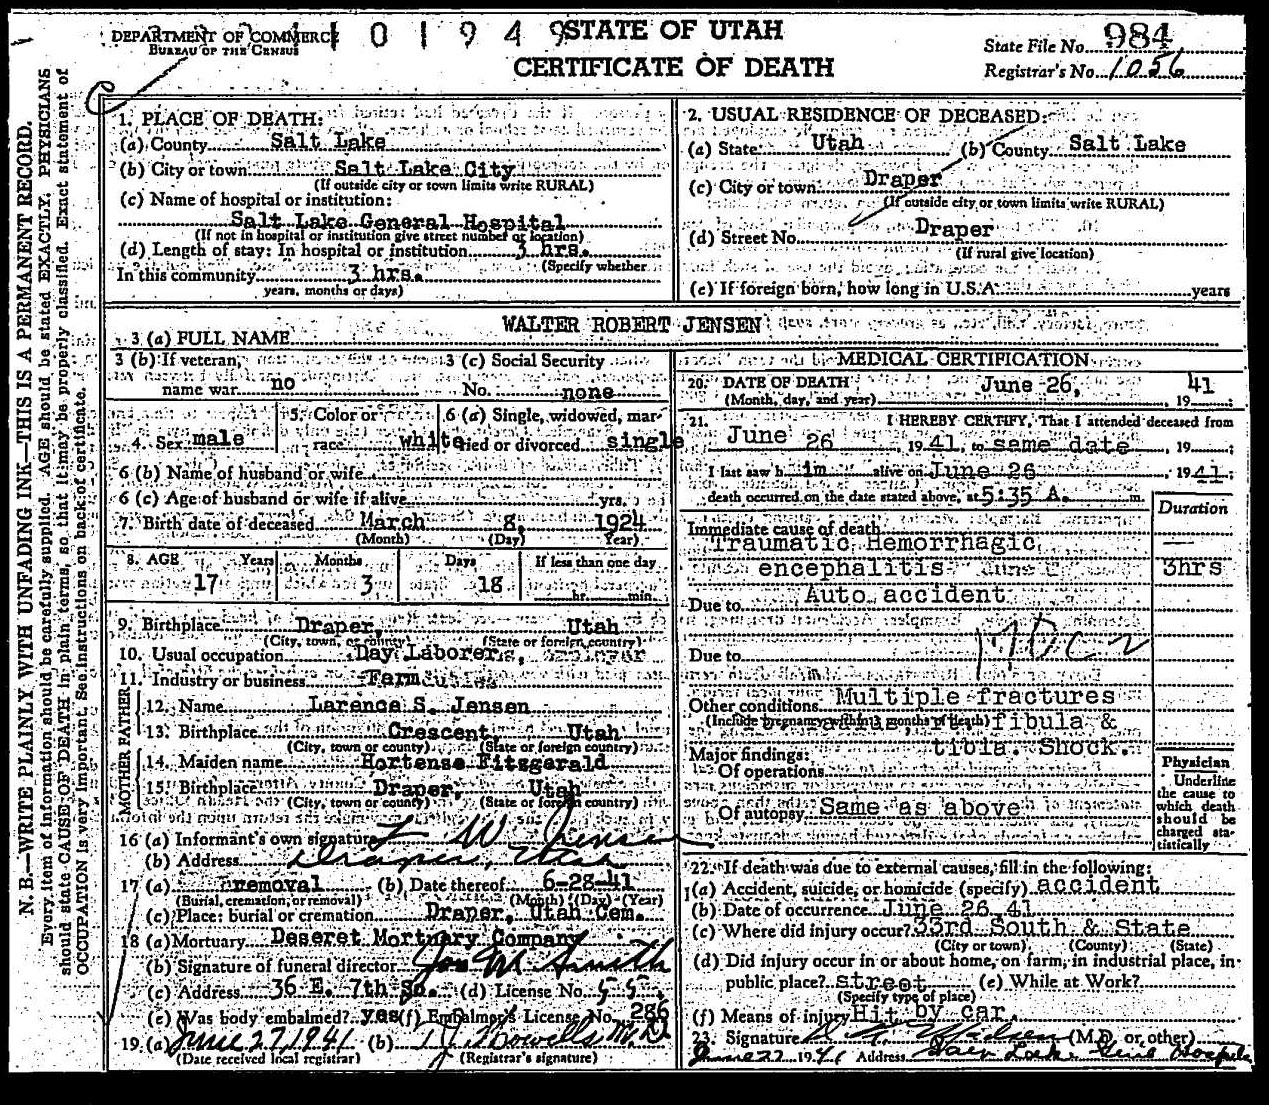 DEPARTMENT OF COMMERCE
BUREAU OF THE CENSUS
1 0 1 9 4 9
STATE OF UTAH
CERTIFICATE OF DEATH
State File No. 984
Registrar's No. 1056
N. B.—WRITE PLAINLY WITH UNFADING INK—THIS IS A PERMANENT RECORD.
Every item of information should be carefully supplied. AGE should be stated EXACTLY. PHYSICIANS
should state CAUSE OF DEATH in plain terms, so that it may be properly classified. Exact statement of
OCCUPATION is very important. See instructions on back of certificate.
1. PLACE OF DEATH:
(a) County Salt Lake
(b) City or town Salt Lake City
(If outside city or town limits write RURAL)
(c) Name of hospital or institution:
Salt Lake General Hospital
(If not in hospital or institution give street number or location)
(d) Length of stay: In hospital or institution 3 hrs.
(Specify whether
In this community 3 hrs.
years, months or days)
2. USUAL RESIDENCE OF DECEASED:
(a) State Utah (b) County Salt Lake
(c) City or town Draper
(If outside city or town limits write RURAL)
(d) Street No. Draper
(If rural give location)
(e) If foreign born, how long in U.S.A. years
3 (a) FULL NAME WALTER ROBERT JENSEN
3 (b) If veteran,
name war no
3 (c) Social Security
No. none
4. Sex male
5. Color or
race white
6 (a) Single, widowed, mar-
ried or divorced single
6 (b) Name of husband or wife
6 (c) Age of husband or wife if alive yrs.
7. Birth date of deceased March 8, 1924
(Month) (Day) Year)
8. AGE Years Months Days If less than one day
17 3 18 hr. min.
9. Birthplace Draper, Utah
(City, town, or county) (State or foreign country)
10. Usual occupation Day Laborer
11. Industry or business Farm
FATHER
12. Name Larence S. Jensen
13. Birthplace Crescent, Utah
(City, town or county) (State or foreign country)
MOTHER
14. Maiden name Hortense Fitzgerald
15. Birthplace Draper, Utah
(City, town or county) (State or foreign country)
16 (a) Informant's own signature L W Jensen
(b) Address Draper, Utah
17 (a) removal (b) Date thereof 6-28-41
(Burial, cremation, or removal) (Month) (Day) (Year)
(c) Place: burial or cremation Draper, Utah Cem.
18 (a) Mortuary Deseret Mortuary Company
(b) Signature of funeral director Jos M Smith
(c) Address 36 E. 7th So. (d) License No. 55
(e) Was body embalmed? yes (f) Embalmer's License No. 286
19. (a) June 27, 1941 (b) T J Howells M.D
(Date received local registrar) (Registrar's signature)
MEDICAL CERTIFICATION
20. DATE OF DEATH June 26, 1941;
(Month, day, and year)
21. I HEREBY CERTIFY, That I attended deceased from
June 26, 1941, to same date, 19 ;
I last saw h im alive on June 26 1941;
death occurred on the date stated above, at 5:35 A. m.
Duration
Immediate cause of death
Traumatic Hemorrhagic
encephalitis 3hrs
Due to Auto accident
Due to
Other conditions Multiple fractures
(Include pregnancy within 3 months of death) radius, fibula &
tibia. Shock.
Major findings:
Of operations
Of autopsy Same as above
Physician
Underline
the cause to
which death
should be
charged sta-
tistically
22. If death was due to external causes, fill in the following:
(a) Accident, suicide, or homicide (specify) accident
(b) Date of occurrence June 26 41
(c) Where did injury occur? 33rd South & State
(City or town) (County) (State)
(d) Did injury occur in or about home, on farm, in industrial place, in-
public place? street (e) While at Work?
(Specify type of place)
(f) Means of injury Hit by car
23. Signature (M.D. or other)
June 27 1941 Address Salt Lake Genl Hospital